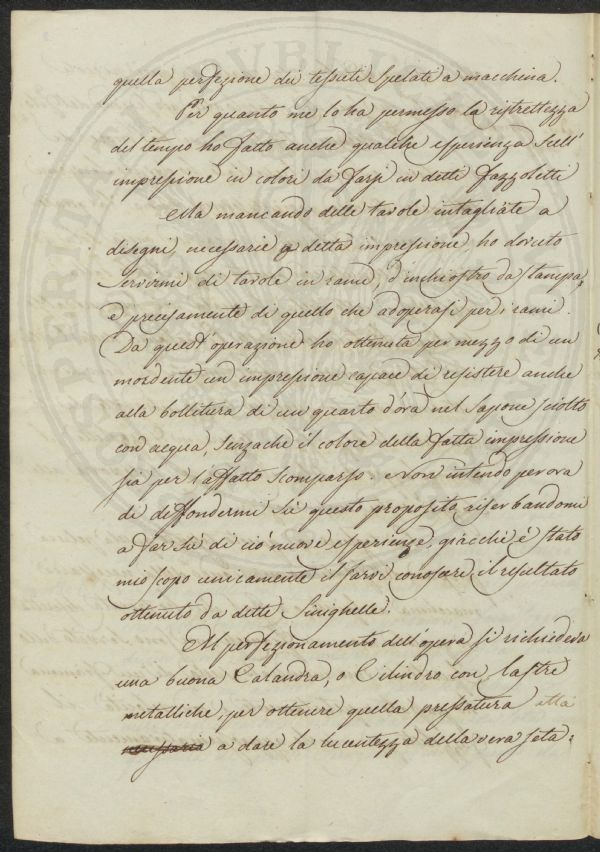 quella perfezione dei tessuti spelati a macchina.
Per quanto me lo ha permesso la ristrettezza
del tempo ho fatto anche qualche esperienza sull'
impressione in colori da farsi in detti fazzoletti
Ma mancando delle tavole intagliate a
disegni, necessarie a detta impressione, ho dovuto
servirmi di tavole in rami, d'inchiostro da stampa,
e precisamente di quello che adoperasi per i rami.
Da quest'operazione ho ottenuta per mezzo di un
mordente un impressione capace di resistere anche
alla bollitura di un quarto d'ora nel sapone sciolto
con acqua, senzachè il colore della fatta impressione
sia per l'affatto scomparso. Non intendo per ora
di diffondermi sù questo proposito riserbandomi
a far sù di ciò nuove esperienze, giacchè è stato
mio scopo unicamente il farvi conoscere il resultato
ottenuto da dette Sinighelle.
Al perfezionamento dell'opera si richiedeva
una buona Calandra, o Cilindro con lastre
metalliche, per ottenere quella pressatura atta
a dare la lucentezza della vera seta: